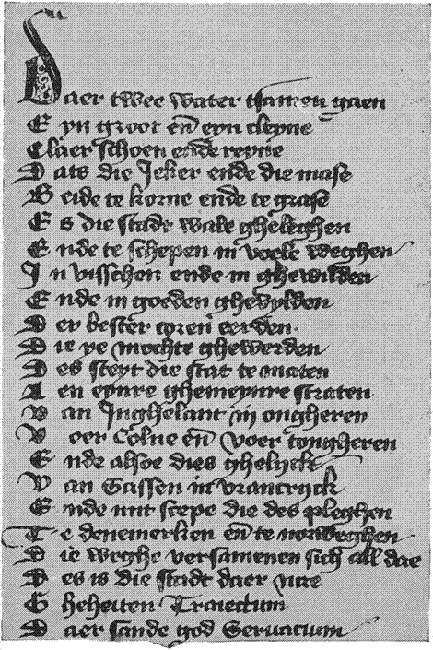 Daer twee water tsamen gaen
Eyn groot eñ eyn cleyne
Claer schoen ende reyne
Dats die Jeker ende die mase
Beide te korne ende te grase
Es die stade wale gheleghen
Ende te schepen in voele weghen
In visschen ende in ghewilden
Ende in goeden ghevylden
Der bester coren eerden
Die ye mochte ghewerden
Des steyt die stat te maten
Aen eynre ghemeynre straten
Van Inghelant in ongheren
Voer Colne eñ voer tongheren
Ende alsoe dies ghelyck
Van Sassen in vrancryck
Ende mit scepe die des pleghen
Te denemerken eñ te norweghen
Die weghe versamenen sich all dae
Des is die stadt daer nae
Gheheiten Traiectum
Daer sande god Servacium